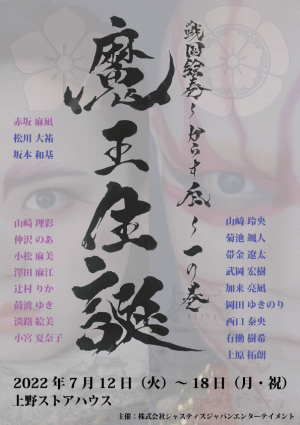 戦国絵巻〜からす凪〜一の巻
魔王生誕
赤坂 麻凪
松川 大祐
坂本 和基
山﨑 理彩
仲沢 のあ
小松 麻美
澤田 麻江
辻村 りか
鼓波 ゆき
淡路 絵美
小宮 夏奈子
山﨑 玲央
菊池 颯人
帯金 遼太
武岡 宏樹
加来 亮凪
岡田 ゆきのり
西口 泰央
有働 樹希
上原 拓朗
2022 年 7 月 12 日（火）〜 18 日（月・祝）
上野ストアハウス
主催：株式会社ジャスティスジャパンエンターテイメント